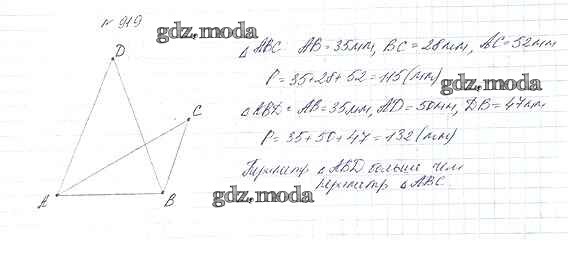 № 919
gdz.moda
D
C
A
B
△ ABC AB = 35мм, BC = 28мм, AC = 52мм
P = 35 + 28 + 52 = 115 (мм)
gdz.moda
△ ABD = AB = 35мм, AD = 50мм, DB = 47мм
P = 35 + 50 + 47 = 132 (мм)
Периметр △ ABD больше чем
периметр △ ABC.
gdz.moda